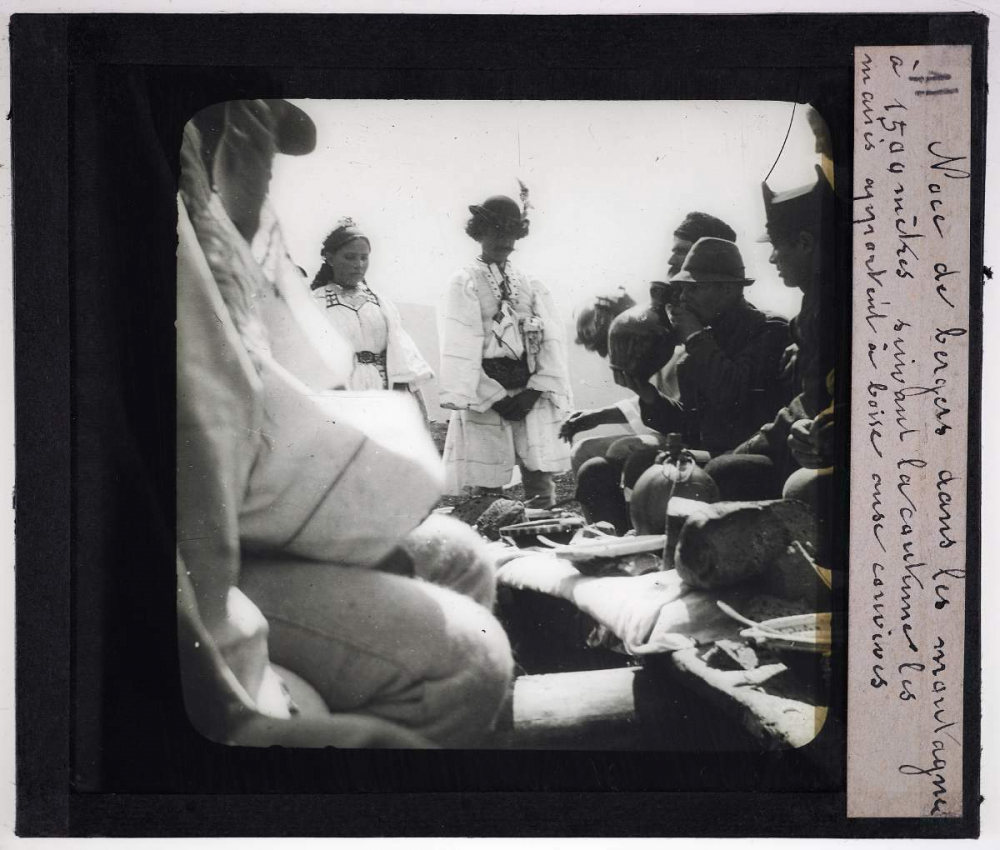 11 Noce de bergers dans les montagnes
à 1500 mètres suivant la coutume les
mariés apportent à boire aux convives